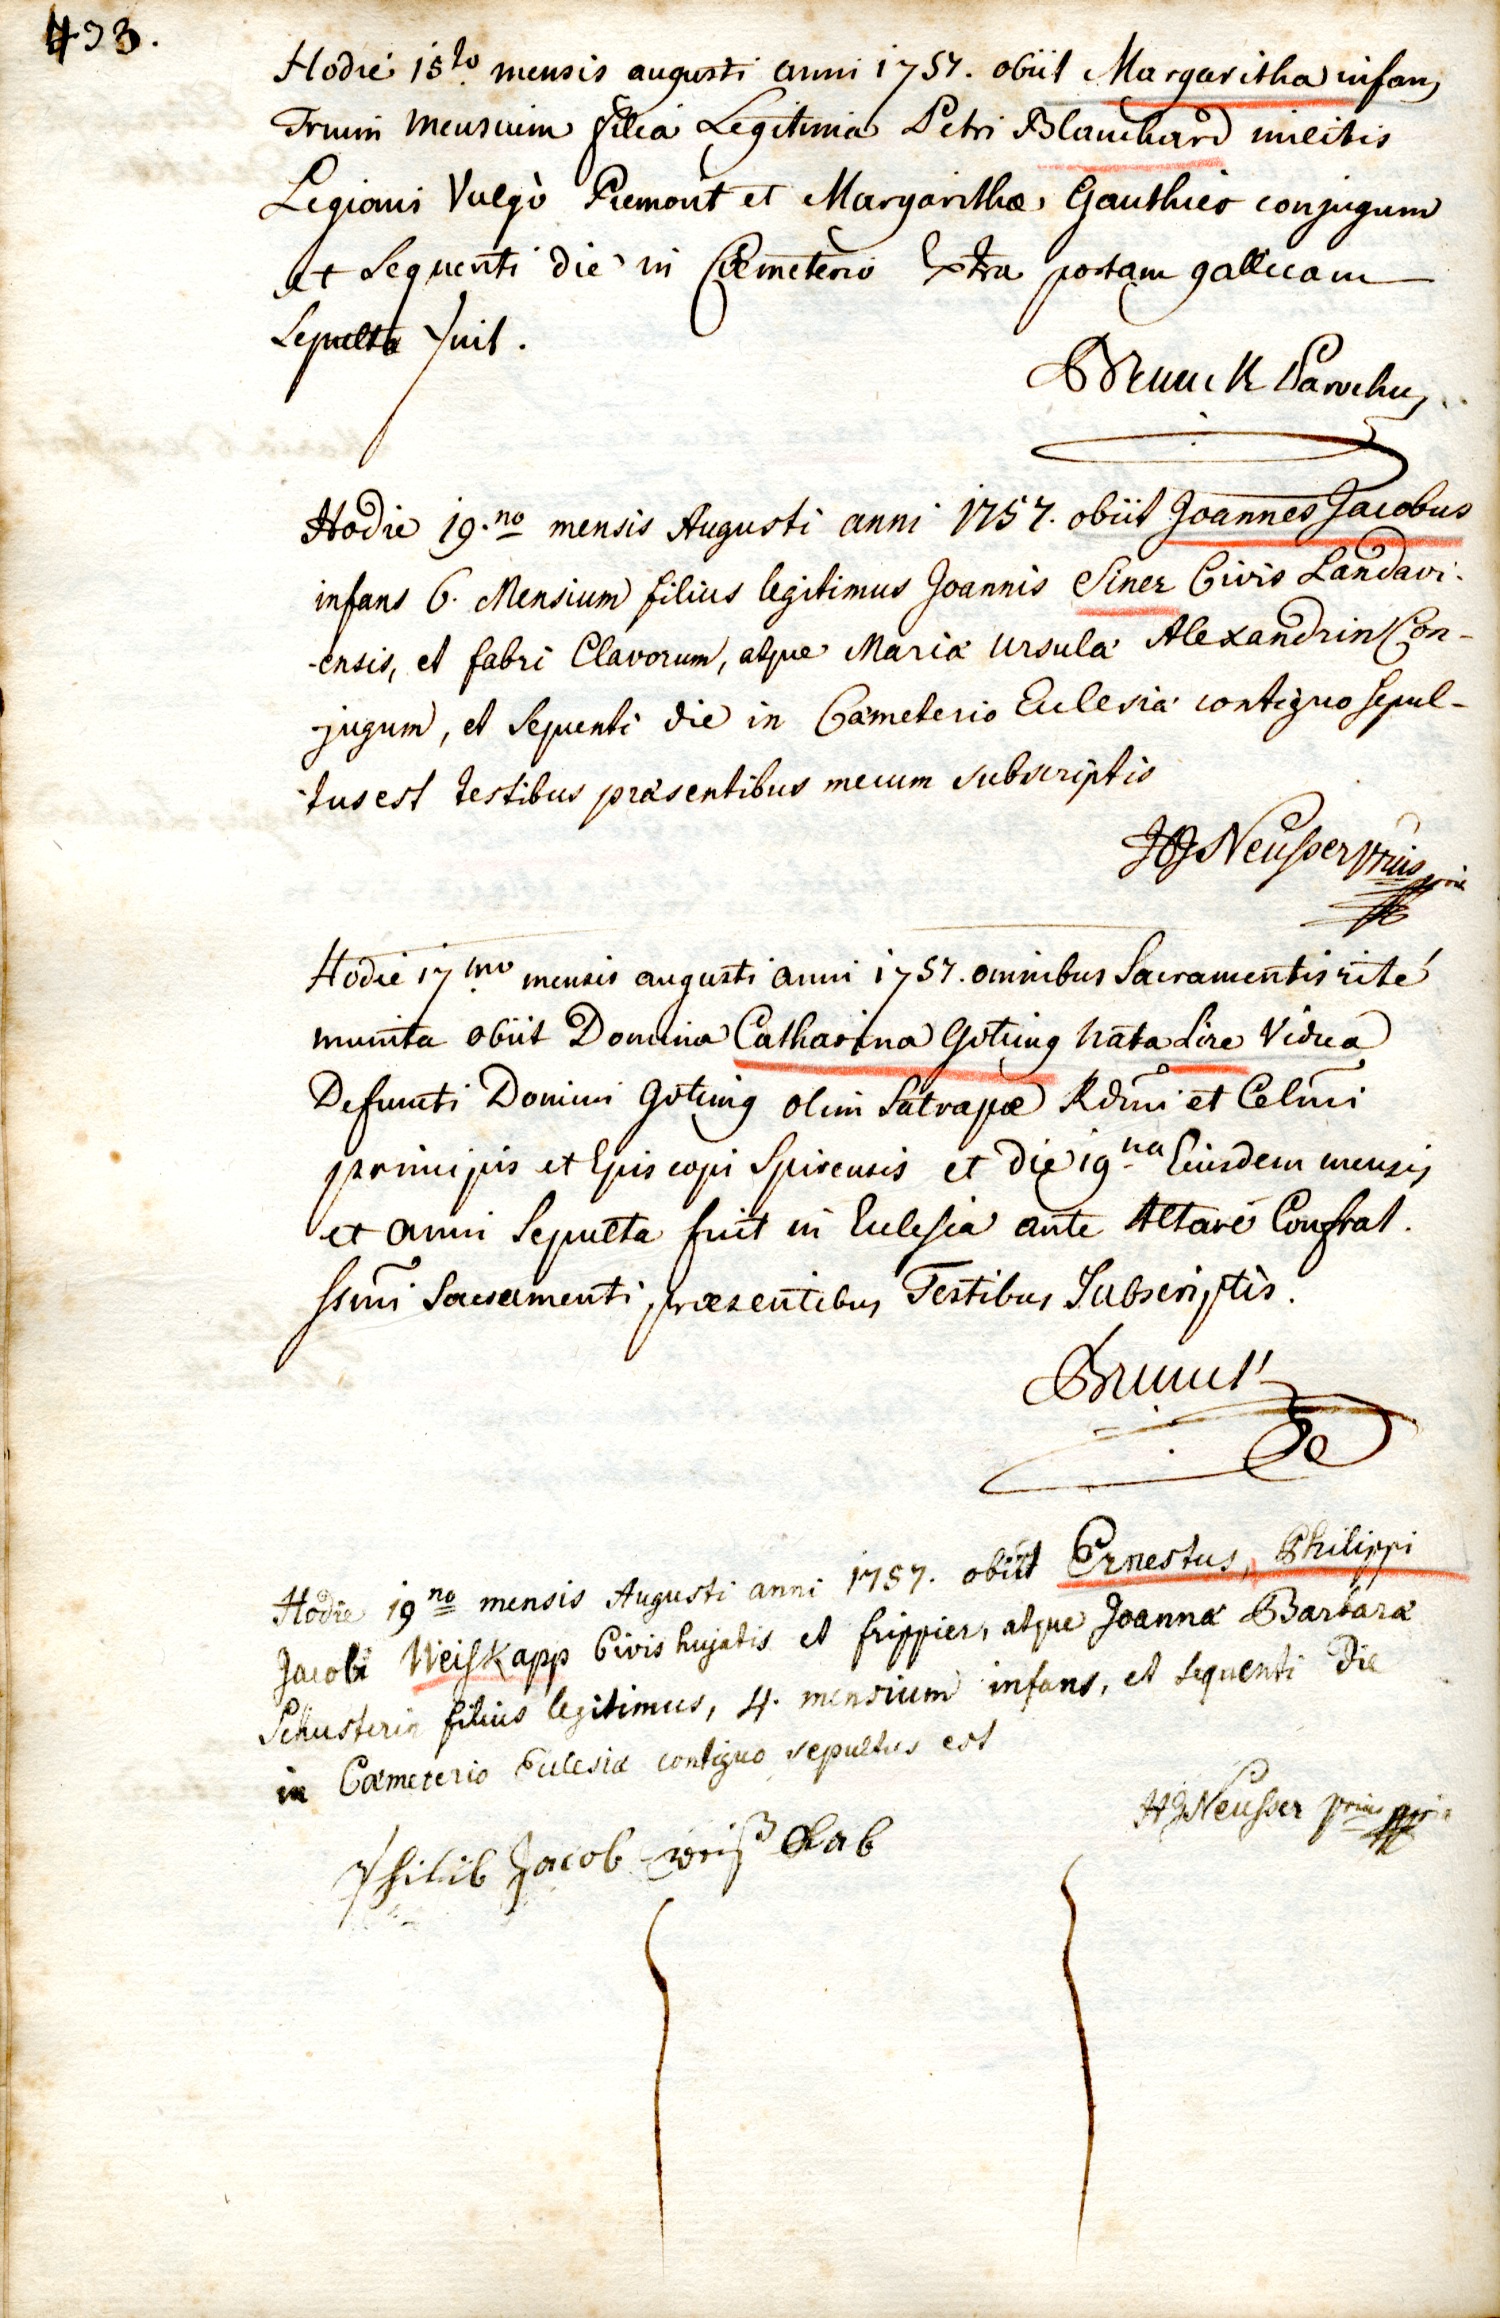 493.
Hodie 15to mensis augusti anni 1757. obiit Margaritha infans
Trium mensium filia Legitima Petri Blanchard militis
Legionis Vulgò Piemont et Margarithæ Gauthier conjugum
et sequenti die in Cœmeterio Extra portam gallicam
sepulta fuit.
Brunck Parochus
Hodie 19.no mensis Augusti anni 1757. obiit Joannes Jacobus
infans 6. Mensium filius legitimus Joannis Siner Civis Landavi-
-ensis, et fabri Clavorum, atque Mariæ Ursulæ Alexandrin Con-
-jugum, et sequenti die in Cæmeterio Ecclesiæ contiguo sepul-
-tus est testibus præsentibus mecum subscriptis
HJ Neusser
Hodie 17mo mensis augusti anni 1757. omnibus Sacramentis rité
munita obiit Domina Catharina Göting nata Lire Vidua
Defuncti Domini Göting olim Satrapæ Rdmi et Celmi
principis et Episcopi Spirensis et die 19na Eiusdem mensis
et anni Sepulta fuit in Ecclesia ante Altare Confrat.
ssmi Sacramenti præsentibus Testibus Subscriptis.
Brunck
Hodie 19no mensis Augusti anni 1757. obiit Ernestus, Philippi
Jacobi Weiskapp Civis hujatis et frippier, atque Joannæ Barbaræ
Schusterin filius legitimus, 4. mensium infans, et sequenti die
in Cœmeterio Ecclesiæ contiguo sepultus est
HJ Neusser
Philib Jacob weiß Kab